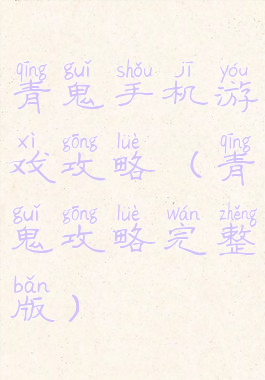 qīng guǐ shǒu jī yóu
青鬼手机游
xì gōng lüè qīng
戏攻略（青
guǐ gōng lüè wán zhěng
鬼攻略完整
bǎn
版）